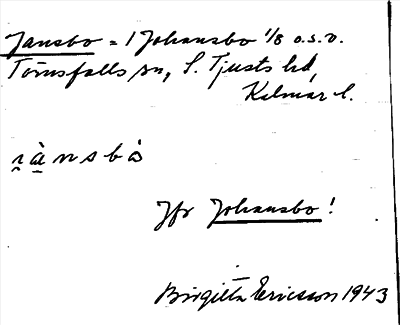 Jansbo = 1 Johansbo 1/8 o.s.v.
Törnsfalls sn, S. Tjusts hd,
Kalmar l.
i̯à̱nsbo
Jfr Johansbo!
Birgitta Ericsson 1943